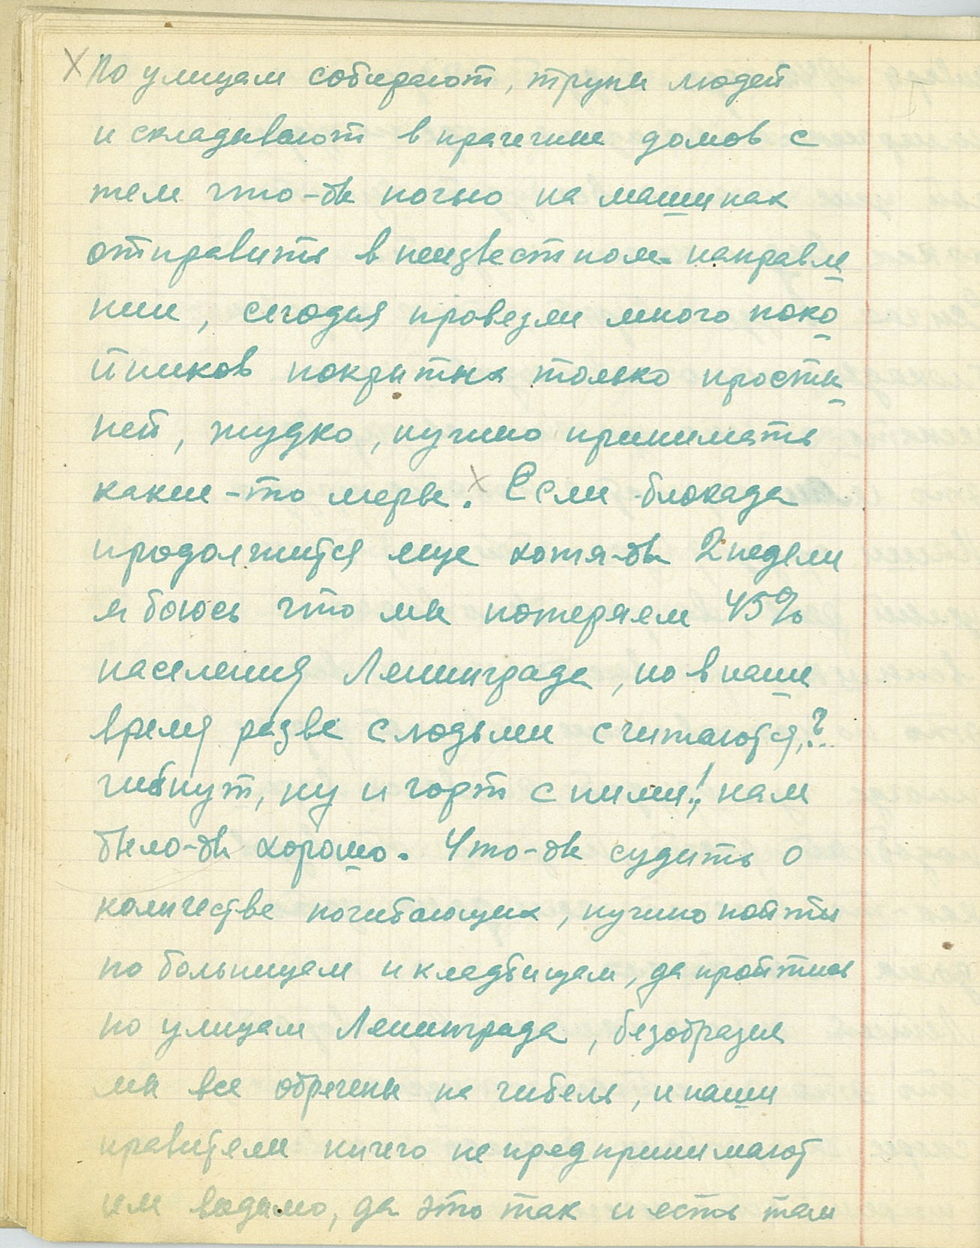 По улицам собирают, трупы людей
и складывают в прачечные домов с
тем что-бы ночью на машинах
отправить в неизвестном направле
нии, сегодня провезли много поко
йников покрытых только просты
ней, жудко, нужно принимать
какие-то меры. Если блокада
продолжится еще хотя-бы 2 недели
я боюсь что мы потеряем 45%
населения Ленинграда, но в наше
время разве с людьми считаются,?..
гибнут, ну и чорт с ними!, нам
было-бы хорошо. Что-бы судить о
количестве погибающих, нужно пойти
по больницам и кладбищам, да пройтись
по улицам Ленинграда, безобразие
мы все обречены на гибель, и наши
правители ничего не предпринимают
им видимо, да это так и есть там